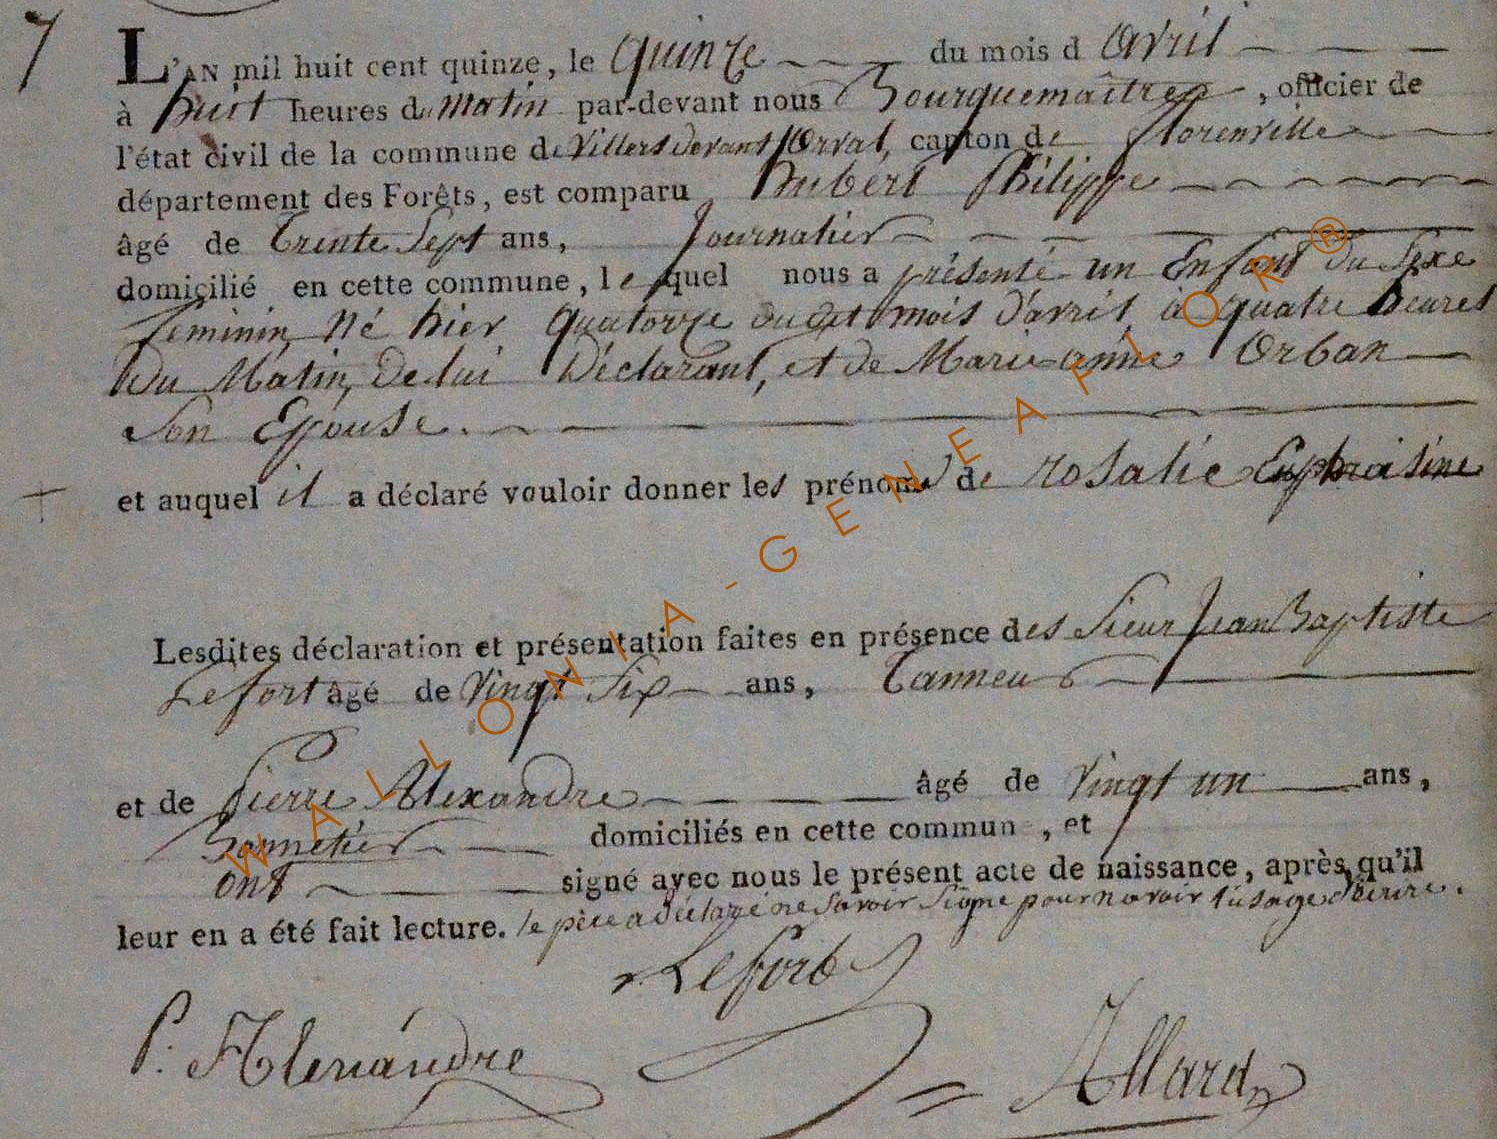 7
L'AN mil huit cent quinze, le Quinze du mois d Avril
à huit heures du Matin par-devant nous Bourguemaître, officier de
l'état civil de la commune de Villers devant Orval, canton de florenville
département des Forêts, est comparu hubert Philippe
âgé de Trente Sept ans, Journalier
domicilié en cette commune, lequel nous a présenté un Enfant du Sexe
feminin, Né hier Quatorze dudit mois d'avril à quatre heures
du Matin, De lui Déclarant, et de Marie anne Orban
Son Epouse.
et auquel il a déclaré vouloir donner les prénoms de rosalie Euphrasine
Lesdites déclaration et présentation faites en présence des Sieur Jean Baptiste
Lefort âgé de Vingt Six ans, Tanneur
et de Pierre Alexandre âgé de Vingt un ans,
Bonnetier domiciliés en cette commun , et
ont signé avec nous le présent acte de naissance, après qu'il
leur en a été fait lecture. le père a déclaré ne Savoir Signe pour n'avoir l'usage d'Ecrire.
Lefort
P. Alexandre
Allard
WALLONIA-GENEAFLOR®